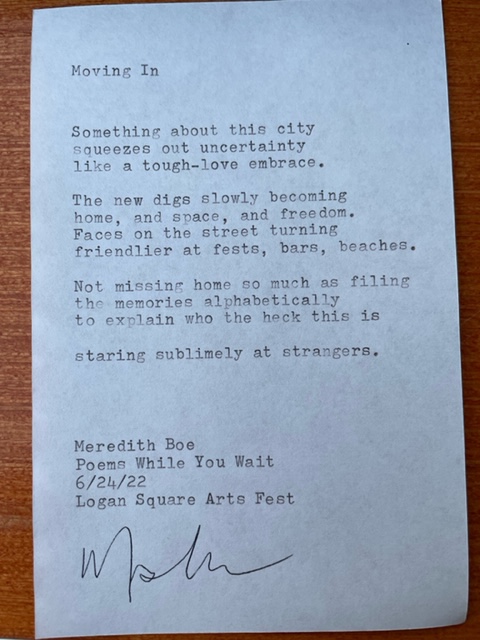 Moving In
Something about this city
squeezes out uncertainty
like a tough-love embrace.
The new digs slowly becoming
home, and space, and freedom.
Faces on the street turning
friendlier at fests, bars, beaches.
Not missing home so much as filing
the memories alphabetically
to explain who the heck this is
staring sublimely at strangers.
Meredith Boe
Poems While You Wait
6/24/22
Logan Square Arts Fest